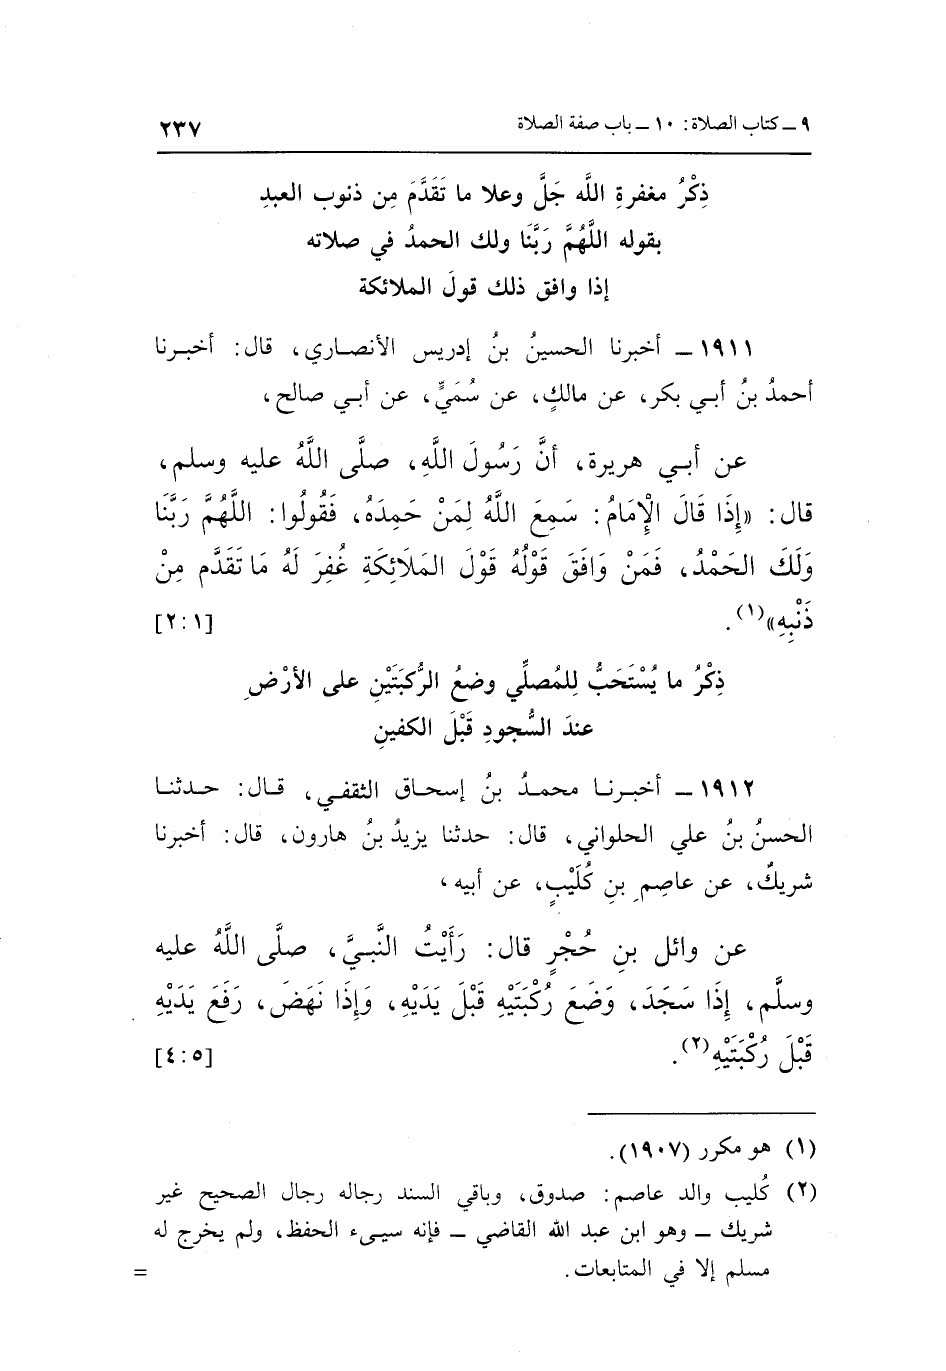 ٩ ـ كتاب الصلاة: ١٠ ـ باب صفة الصلاة ٢٣٧
ذِكْرُ مغفرةِ اللَّه جَلَّ وعلا ما تَقَدَّمَ مِن ذنوبِ العبدِ
بقوله اللَّهُمَّ رَبَّنَا ولك الحمدُ في صلاته
إذا وافق ذلك قولَ الملائكة
١٩١١ ـ أخبرنا الحسينُ بنُ إدريس الأنصاري، قال: أخبرنا
أحمدُ بنُ أبي بكر، عن مالكٍ، عن سُمَيٍّ، عن أبي صالح،
عن أبي هريرة، أنَّ رَسُولَ اللَّهِ، صلَّى اللَّهُ عليه وسلم،
قال: «إِذَا قَالَ الْإِمَامُ: سَمِعَ اللَّهُ لِمَنْ حَمِدَهُ، فَقُولُوا: اللَّهُمَّ رَبَّنَا
وَلَكَ الحَمْدُ، فَمَنْ وَافَقَ قَوْلُهُ قَوْلَ المَلَائِكَةِ غُفِرَ لَهُ مَا تَقَدَّم مِنْ
ذَنْبِهِ»(١). [٢:١]
ذِكْرُ ما يُسْتَحَبُّ لِلمُصلِّي وضعُ الرُّكبَتَيْنِ على الأرْضِ
عندَ السُّجودِ قَبْلَ الكفينِ
١٩١٢ ـ أخبرنا محمدُ بنُ إسحاق الثقفي، قال: حدثنا
الحسنُ بنُ علي الحلواني، قال: حدثنا يزيدُ بنُ هارون، قال: أخبرنا
شريكٌ، عن عاصمِ بنِ كُلَيْبٍ، عن أبيه،
عن وائل بنِ حُجْرٍ قال: رَأَيْتُ النَّبيَّ، صلَّى اللَّهُ عليه
وسلَّم، إِذَا سَجَدَ، وَضَعَ رُكْبَتَيْهِ قَبْلَ يَدَيْهِ، وَإِذَا نَهَضَ، رَفَعَ يَدَيْهِ
قَبْلَ رُكْبَتَيْهِ(٢). [٤:٥]
(١) هو مكرر (١٩٠٧).
(٢) كُليب والد عاصم: صدوق، وباقي السند رجاله رجال الصحيح غير
شريك ـ وهو ابن عبد الله القاضي ـ فإنه سيىء الحفظ، ولم يخرج له
مسلم إلا في المتابعات. =